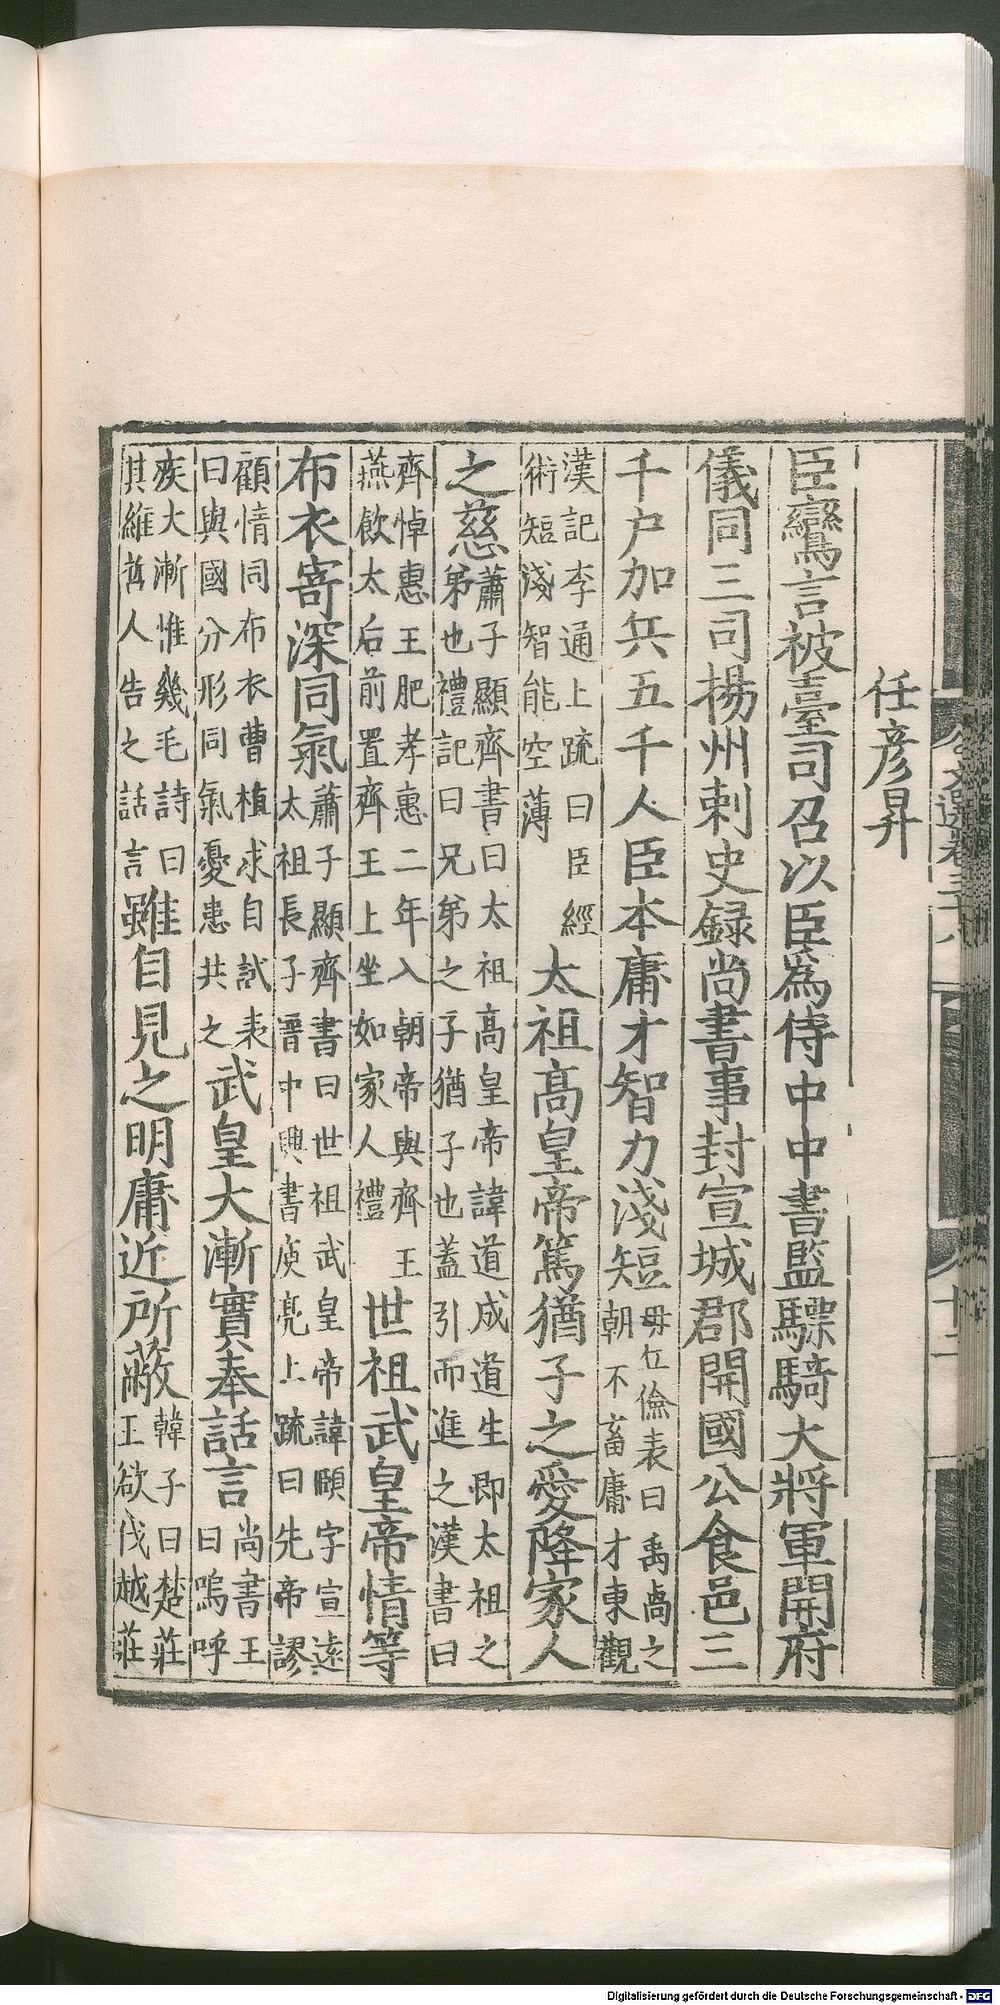 文選卷三十八
廿二
任彦昇
臣鸞言被臺司召以臣爲侍中中書監驃騎大將軍開府
儀同三司揚州剌史録尚書事封宣城郡開國公食邑三
千户加兵五千人臣本庸才智力淺短
毋丘儉表曰禹卨之
朝不畜庸才東觀
漢記李通上疏曰臣經
術短淺智能空薄
太祖高皇帝篤猶子之愛降家人
之慈
蕭子顯齊書曰太祖高皇帝諱道成道生即太祖之
弟也禮記曰兄弟之子猶子也蓋引而進之漢書曰
齊悼惠王肥孝惠二年入朝帝與齊王
燕飲太后前置齊王上坐如家人禮
世祖武皇帝情等
布衣寄深同氣
蕭子顯齊書曰世祖武皇帝諱賾字宣遠
太祖長子晉中興書庾亮上疏曰先帝謬
顧情同布衣曹植求自試表
曰與國分形同氣憂患共之
武皇大漸實奉話言
尚書王
曰嗚呼
疾大漸惟幾毛詩曰
其維哲人告之話言
雖自見之明庸近所蔽
韓子曰楚莊
王欲伐越莊
Digitalisierung gefördert durch die Deutsche Forschungsgemeinschaft - DFG